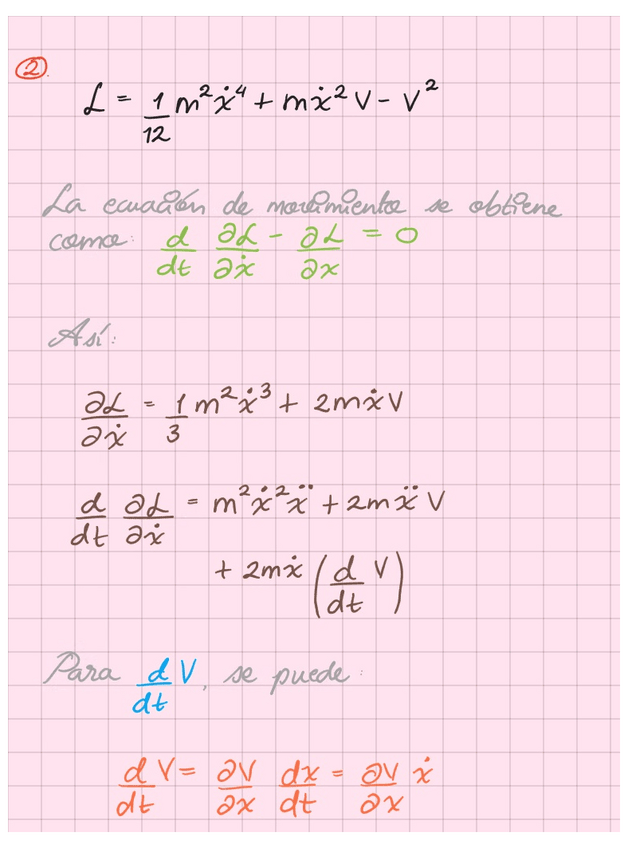 ②.
L = 1/12 m²ẋ⁴ + mẋ²V - V²
La ecuación de movimiento se obtiene
como: d/dt ∂L/∂ẋ - ∂L/∂x = 0
Así:
∂L/∂ẋ = 1/3 m²ẋ³ + 2mẋV
d/dt ∂L/∂ẋ = m²ẋ²ẍ + 2mẍV
+ 2mẋ (d/dt V)
Para d/dt V, se puede:
d/dt V = ∂V/∂x dx/dt = ∂V/∂x ẋ